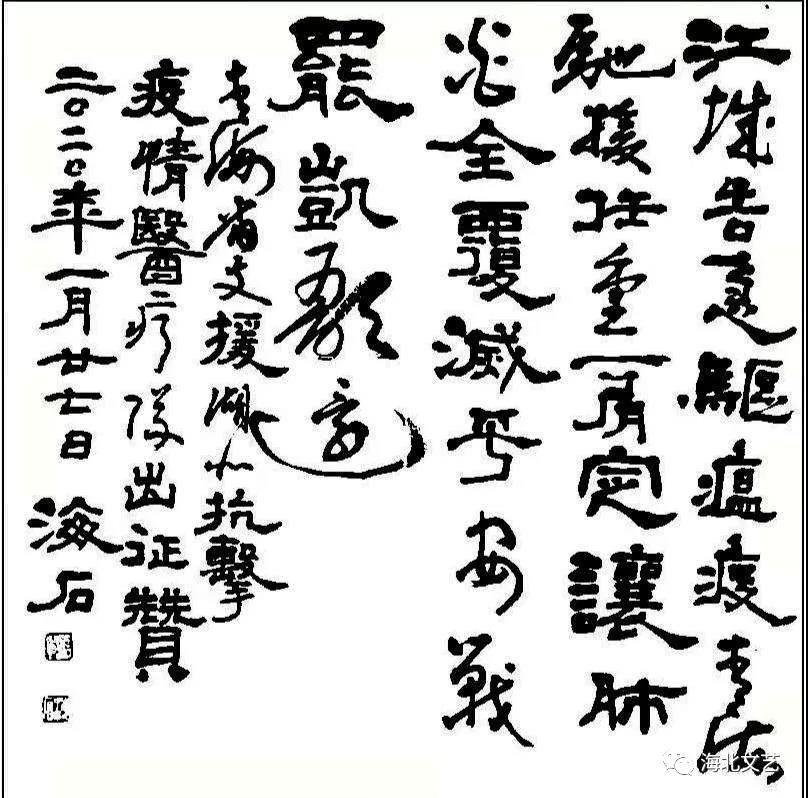 江城告急驅瘟疫青海
馳援任重肩定讓肺
炎全覆滅平安戰
罷凱歌還
青海省支援湖北抗擊
疫情醫疗隊出征贊
二〇二〇年一月廿七日 海石
海北文艺